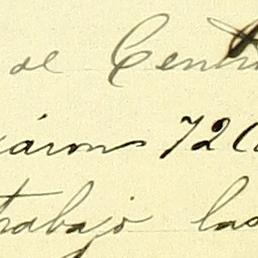 de Centr
áron 720
trabajo las